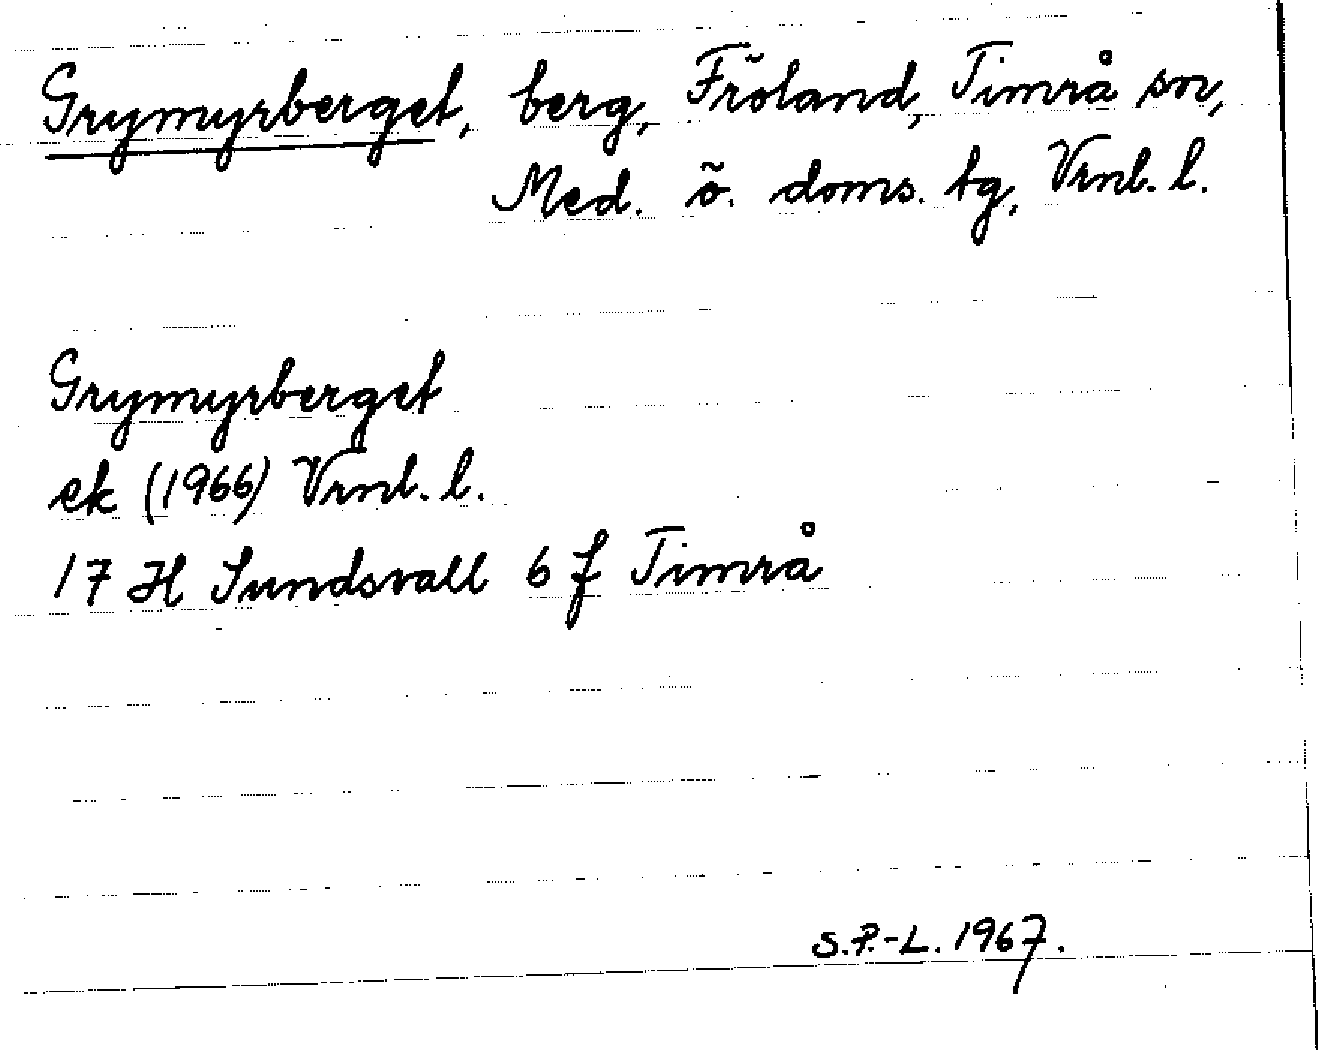 Grymyrberget, berg, Fröland, Timrå sn,
Med. ö. doms. tg, Vrnl. l.
Grymyrberget
ek (1966) Vrnl. l.
17 H Sundsvall 6 f Timrå
S.P.-L. 1967.